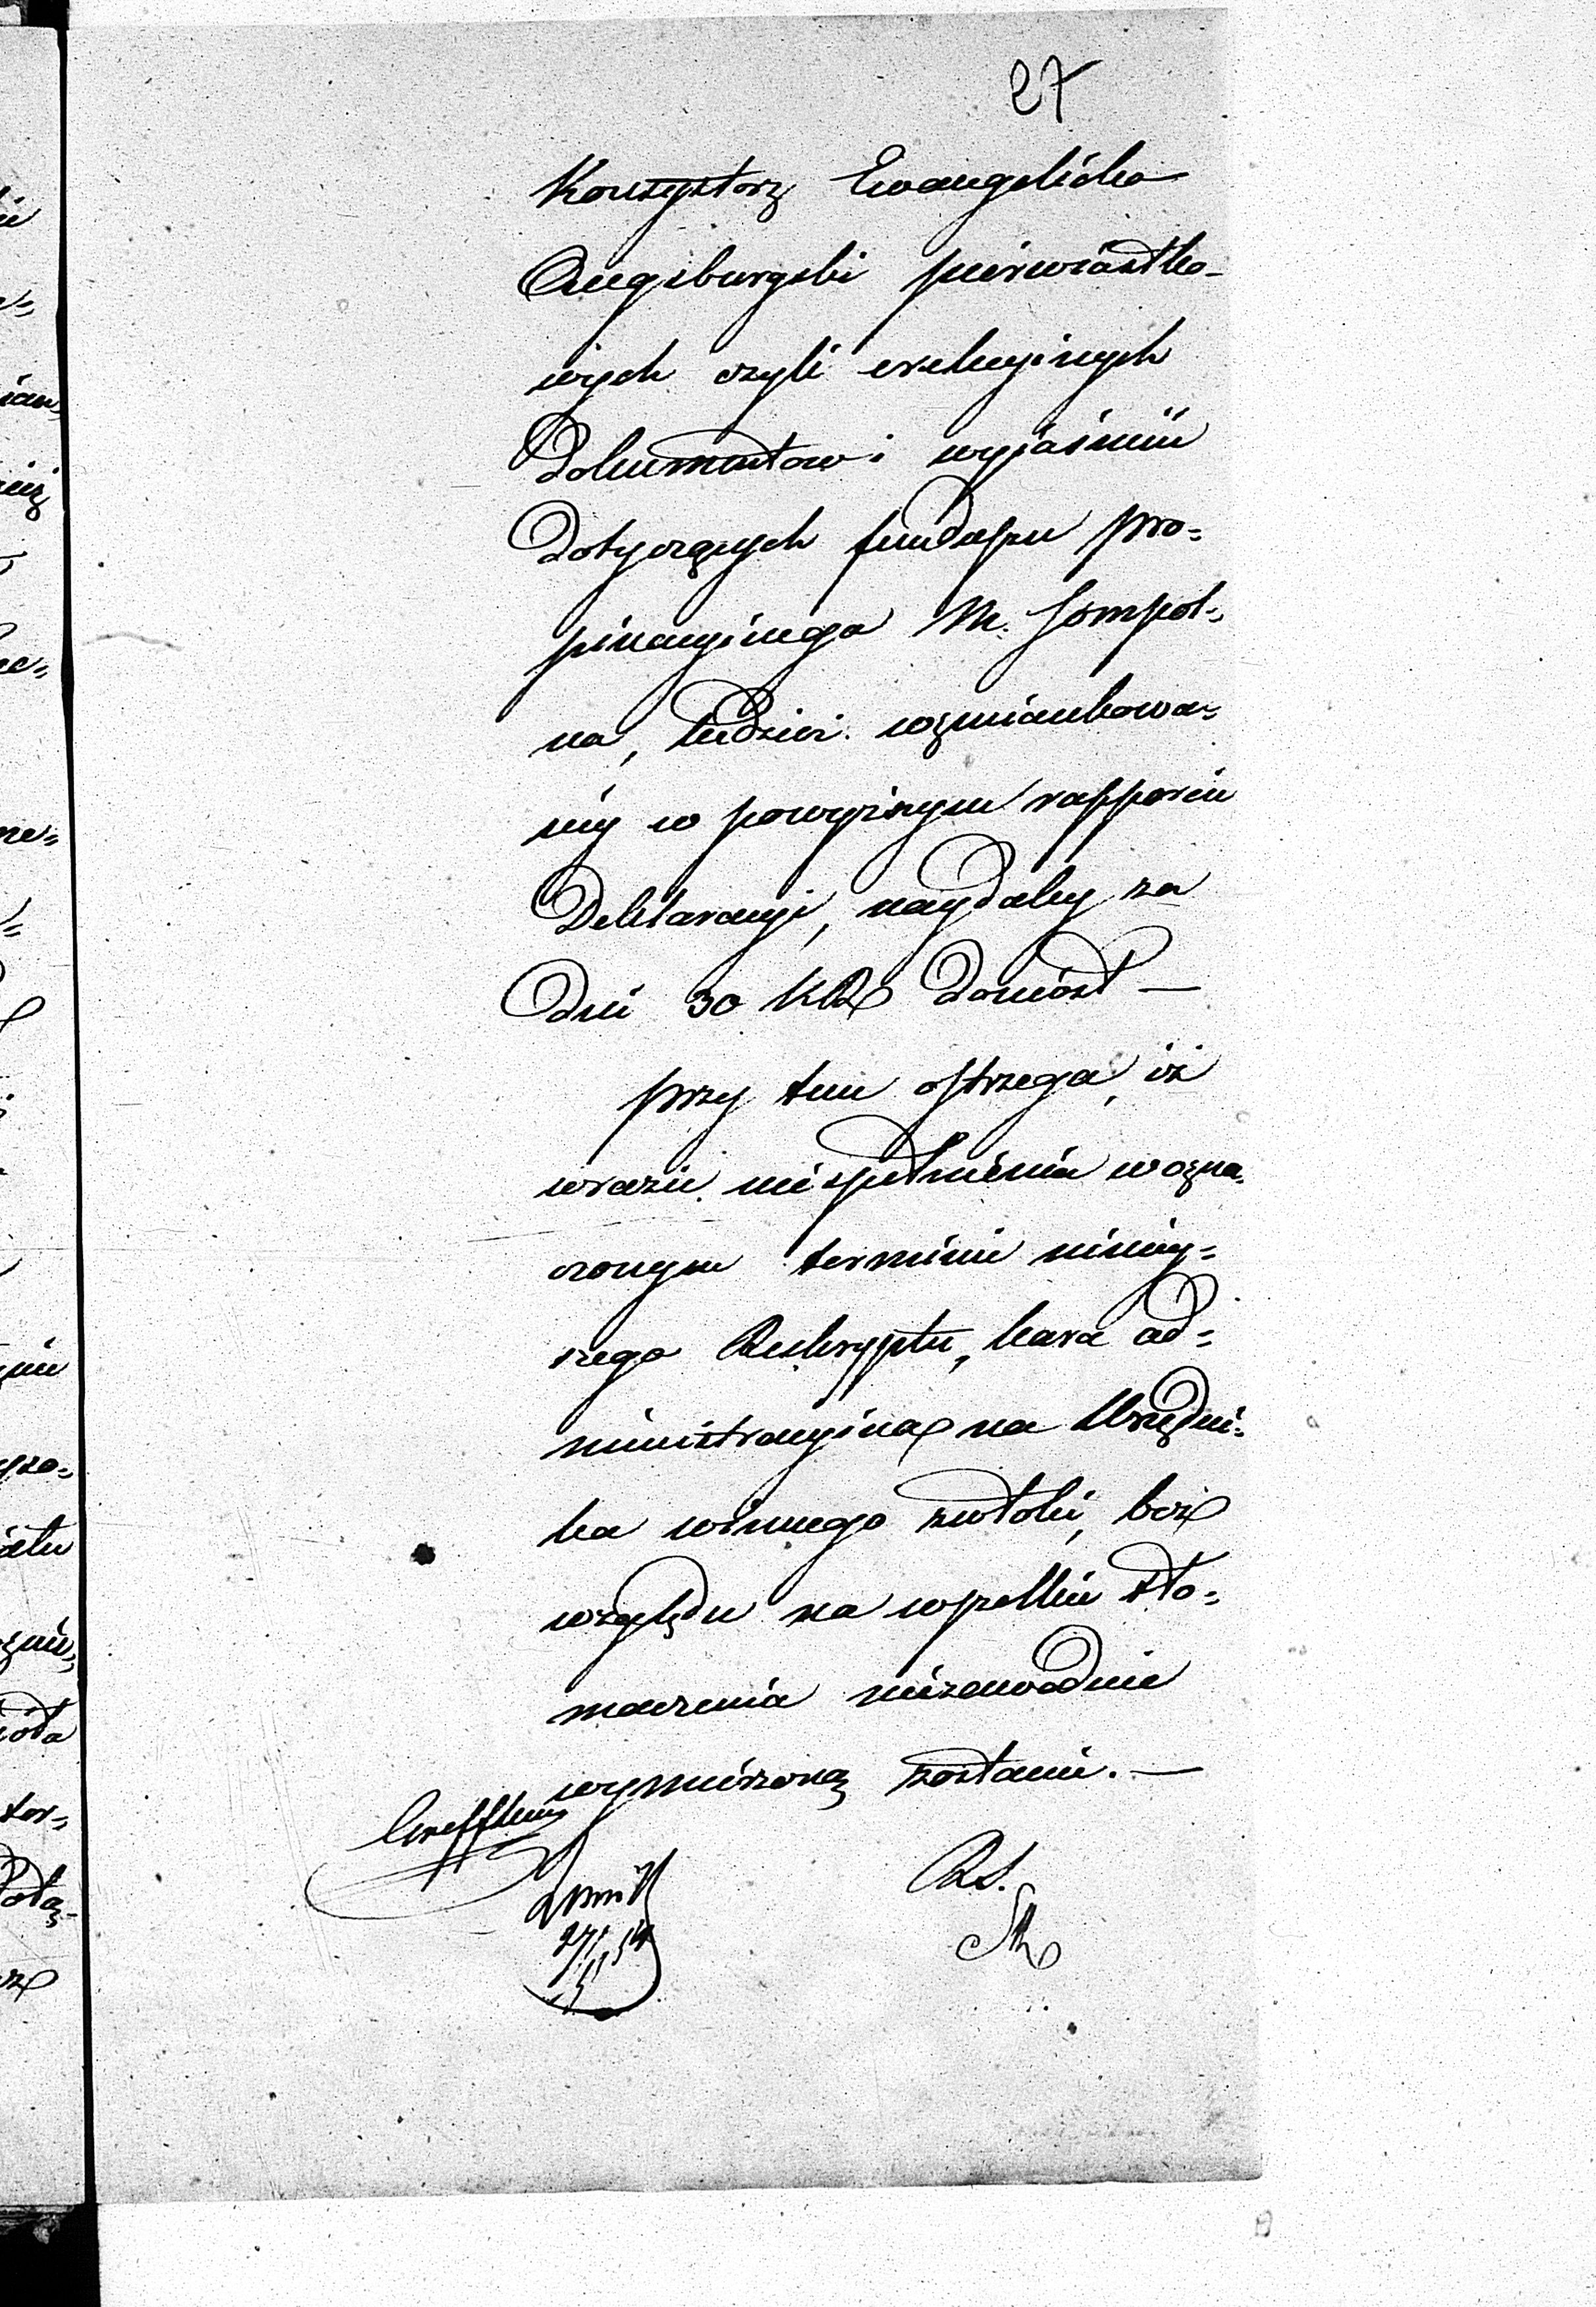 27
Konsystorz Ewangelicko
Augsburgski pierwiastko-
wych czyli erekcyinych
Dokumentow i wyjaśnień
Dotyczących funduszu pro=
pinacyinego M. Sompol=
na, tudzież wzmiankowa=
néy w powyższym rapporcie
Deklaracyi, naydaléy za
Dni 30 Doniósł —
przy tem ostrzega, iż
wrazie niespełnienia wozna=
czonym terminie ninięy=
szego Reskryptu, kara ad=
ministracyina na Urzędni=
ka winnego zwłoki, bez
względu na wszelkie tło=
maczenia niezawodnie
wymierzoną zostanie. —